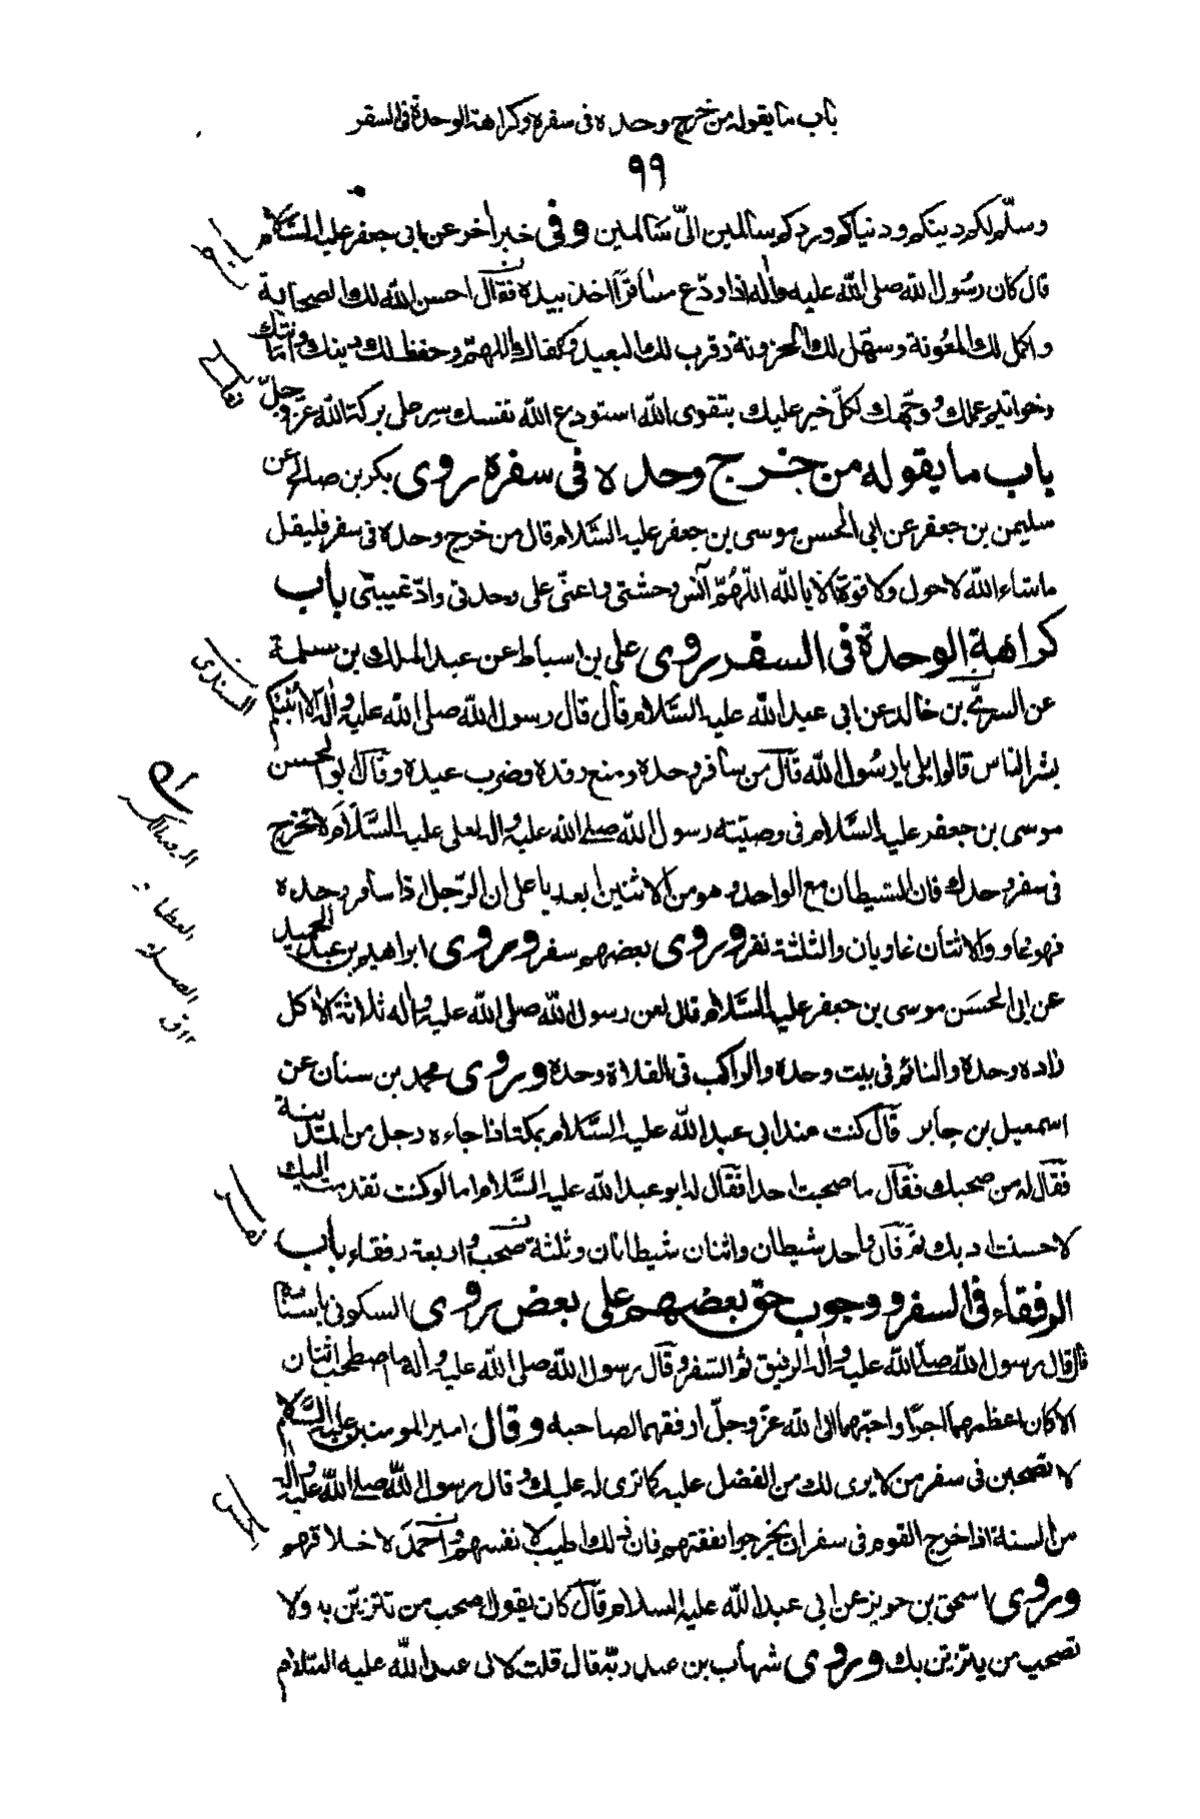 باب ما يقوله من خرج وحده فى سفره وكراهة الوحدة فى السفر
٩٩
وسلّم لكم دينكم ودنياكم وردكم سالمين الىّ سالمين وفى خبر اخر عن ابى جعفر عليه السّلام
قال كان رسُول الله صلى الله عليه واله اذا ودّع مسافرًا اخذ بيده ثم قال احسن الله لك الصحابة
واكمل لك المعُونة وسهّل لك الحزونة وقرب لك البعيد وكفاك المهمّ وحفظ لك دينك وامانتك
وخواتيم عملك ووجّهك لكلّ خير عليك بتقوى الله استودع الله نفسك سر على بركة الله عزّ وجلّ
باب ما يقوله من خرج وحده فى سفره روى بكر بن صالح عن
سليمن بن جعفر عن ابى الحسن موسى بن جعفر عليه السّلام قال من خرج وحده فى سفر فليقل
ماشاء الله لا حول ولا قوة الّا بالله اللّهُمّ آنس وحشتى واعنّى على وحدتى وادّ غيبتى باب
كراهة الوحدة فى السفر روى على بن اسباط عن عبد الملك بن سلمة
عن السرىّ بن خالد عن ابى عبد الله عليه السّلام قال قال رسول الله صلى الله عليه واله الا انبئكم
بشر الناس قالوا بلى يا رسُول الله قال من سافر وحده ومنع رفده وضرب عبده وقال ابو الحسن
موسى بن جعفر عليه السّلام فى وصيّة رسول الله صلى الله عليه واله لعلى عليه السّلام لا تخرج
فى سفر وحدك فان الشيطان مع الواحد وهو من الاثنين ابعد يا على ان الرّجل اذا سافر وحده
فهو غاو والاثنان غاويان والثلثة نفر وروى بعضهم سفر وروى ابراهيم بن عبد الحميد
عن ابى الحسَن موسى بن جعفر عليه السّلام قال لعن رسول الله صلى الله عليه واله ثلاثة الاكل
زاده وحده والنائم فى بيت وحده والراكب فى الفلاة وحده وروى محمد بن سنان عن
اسمعيل بن جابر قال كنت عند ابى عبد الله عليه السّلام بمكة اذا جاءه رجل من المدينة
فقال له من صحبك فقال ما صحبت احدا فقال له ابو عبد الله عليه السّلام اما لو كنت تقدمت اليك
لاحسنت ادبك ثم قال واحد شيطان واثنان شيطانان وثلثة صحب واربعة رفقاء باب
الرفقاء فى السفر ووجوب حق بعضهم على بعض روى السكونى باسناده
قال قال رسول الله صلى الله عليه واله الرفيق ثم السّفر وقال رسول الله صلى الله عليه واله ما اصطحب اثنان
الا كان اعظمهما اجرًا واحبّهما الى الله عزّ وجلّ ارفقهما لصاحبه وقال امير المومنين عليه السّلام
لا تصحبن فى سفر من لا يرى لك من الفضل عليه كما ترى له عليك وقال رسول الله صلى الله عليه واله
من السنة اذا خرج القوم فى سفر ان يخرجوا نفقتهم فان ذلك اطيب لانفسهم واحمد لاخلاقهم
وروى اسحق بن حريز عن ابى عبد الله عليه السلام قال كان يقول اصحب من تتزيّن به ولا
تصحب من يتزيّن بك وروى شهاب بن عبد ربّه قال قلت لابى عبد الله عليه السّلام
السندى